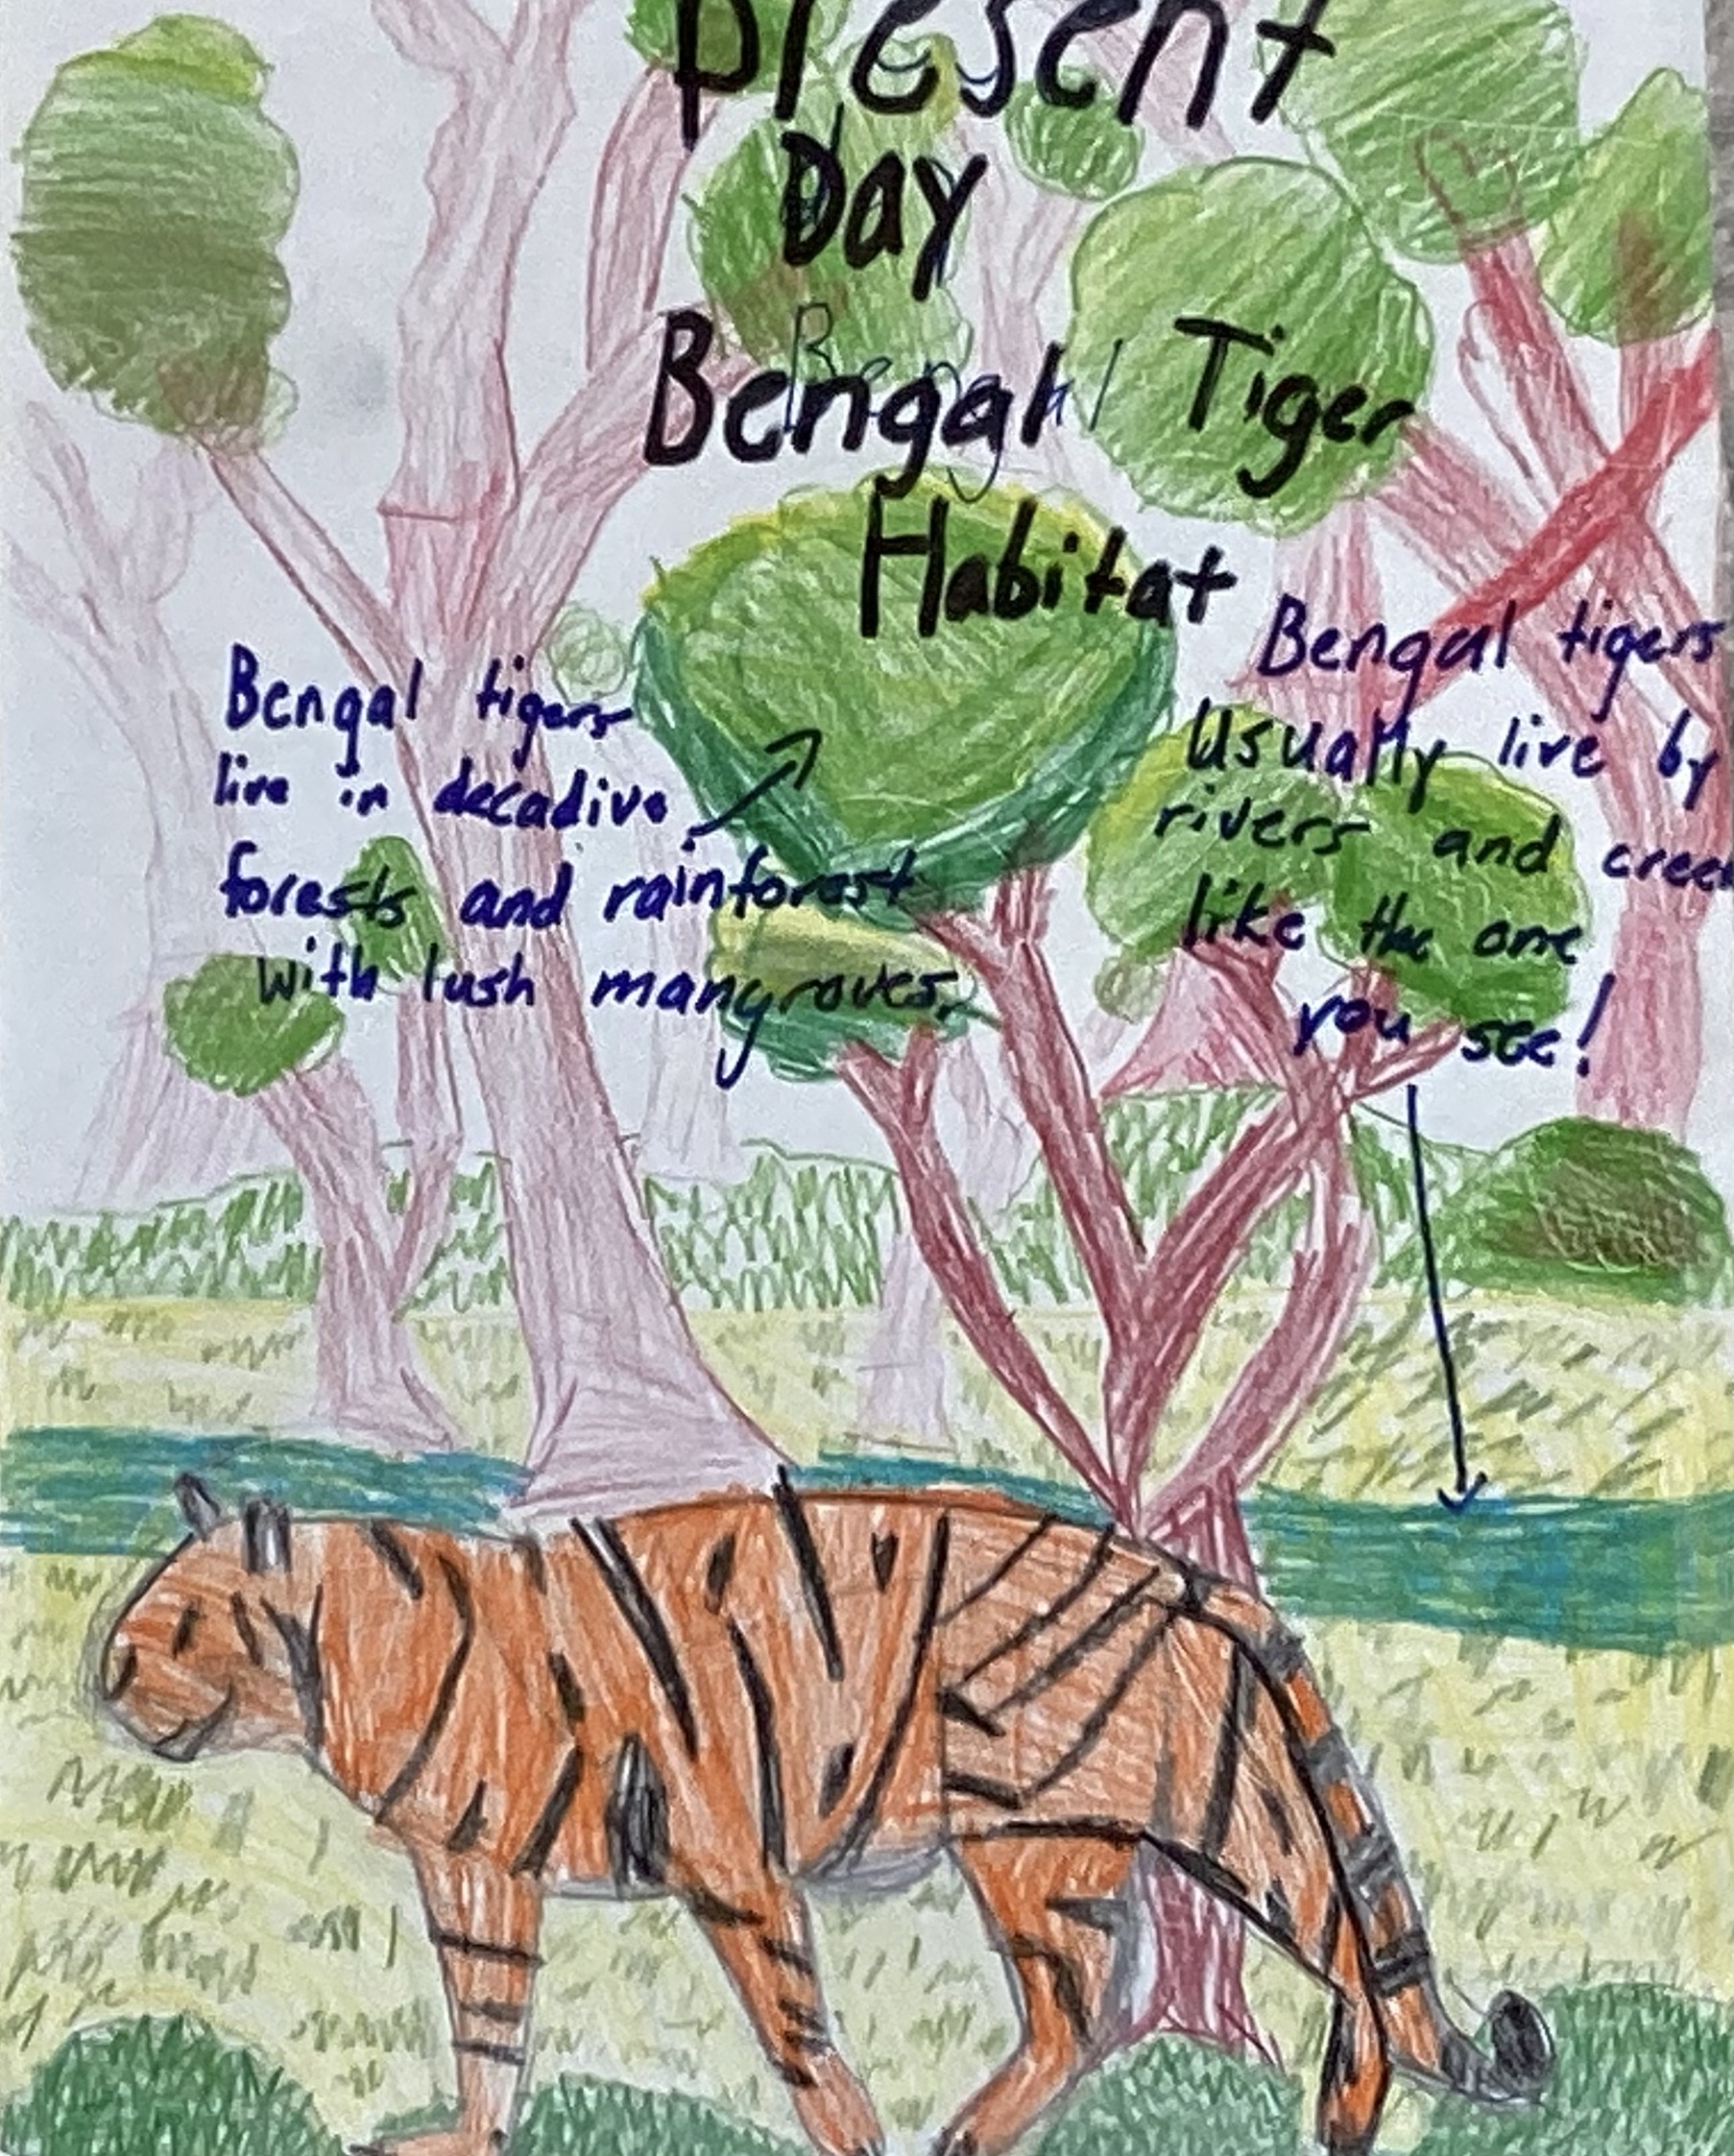 present
Day
Bengal Tiger
Habitat
Bengal tigers
live in decadive
forests and rainforest
with lush mangroves.
Bengal tigers
Usually live by
rivers and creek
like the one
you see!